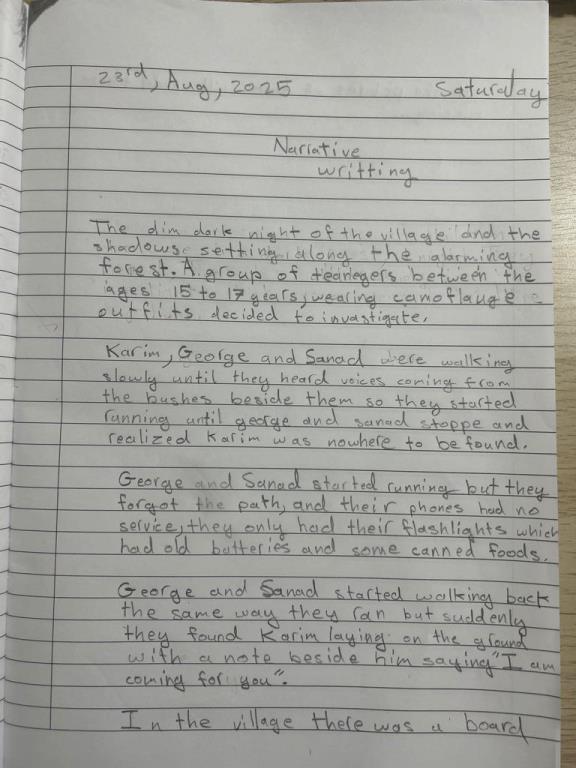 23rd, Aug, 2025 Saturday
Narrative
writting
The dim dark night of the village and the
shadows setting along the alarming
forest. A group of teanegers between the
ages 15 to 17 years, wearing camoflauge
outfits decided to invastigate.
Karim, George and Sanad were walking
slowly until they heard voices coming from
the bushes beside them so they started
running until george and sanad stoppe and
realized Karim was nowhere to be found.
George and Sanad started running but they
forgot the path, and their phones had no
service, they only had their flashlights which
had old batteries and some canned foods.
George and Sanad started walking back
the same way they ran but suddenly
they found Karim laying on the ground
with a note beside him saying "I am
coming for you".
In the village there was a board